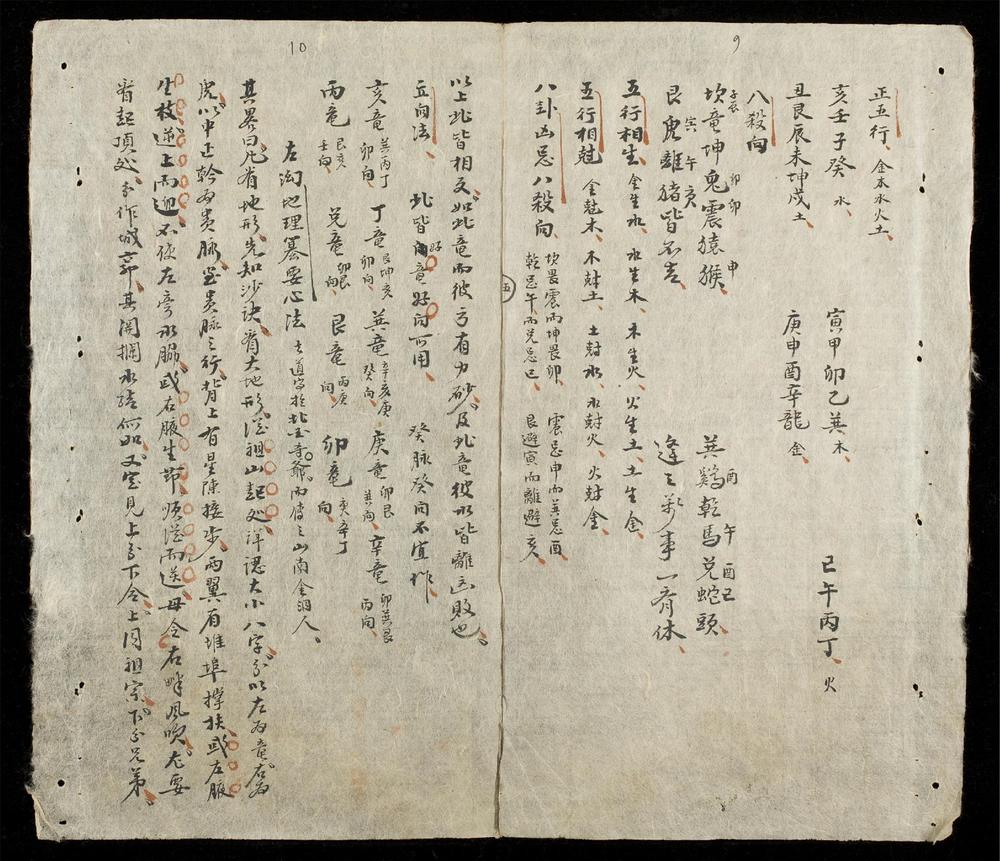 9
正五行 金木水火土
亥壬子癸 水 寅甲卯乙巽 木 巳午丙丁 火
丑艮辰未坤戌 土 庚申酉辛龍 金
八殺向
坎竜坤兎震猿猴 巽鷄乾馬兌蛇頭
子辰 卯 卯 申 酉 午 酉巳
艮虎離猪皆不吉 逢之萬事一齊休
寅 午 亥
五行相生 金生水 水生木 木生火 火生土 土生金
五行相尅 金尅木 木尅土 土尅水 水尅火 火尅金
八卦凶忌八殺向 坎畏震而坤畏卯 震忌申而巽忌酉
乾忌午而兌忌巳 艮避寅而離避亥
五
10
以上此皆相反 如此竜而彼方有力砂 及此竜彼水皆離凶敗也
立向法 此皆向竜好向可用 癸脉癸向不宜作
好
亥竜 巽丙丁卯向 丁竜 艮坤亥卯向 巽竜 辛亥庚癸向 庚竜 卯艮巽向 辛竜 卯巽艮丙向
丙竜 艮亥壬向 兌竜 卯艮向 艮竜 丙庚向 卯竜 庚辛丁向
左㳍地理纂要心法
其畧曰 凡看地形 先知沙訣 看大地形 從祖山起處 詳認大小八字 分以左為竜 右為
虎 以中正幹為貴脉 貴脉之行 背上有星陳接步 兩翼有堆埠撐扶 或左腋
生枝逆上而迎 不使左旁水脇 或右腋生節 順從而送 毋令右畔風吹 尤要
看起頂處 分作城郭 其開攔水繞何如 又宜見上分下合 上同祖宗 下分兄弟